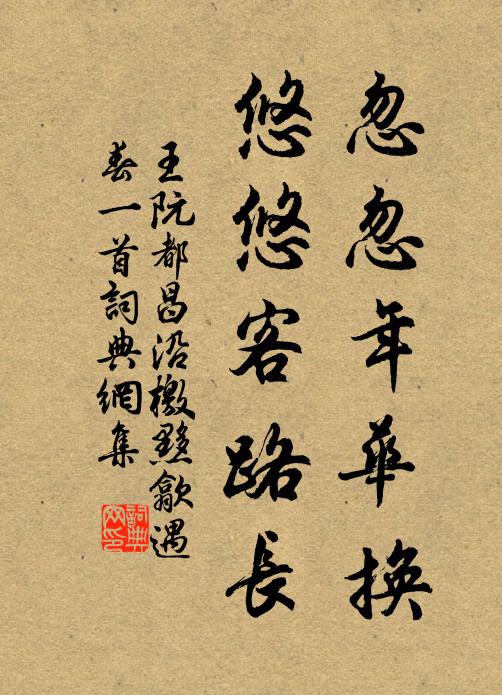 忽忽年華換
悠悠客路長
王阮都昌沿檄黟歙遇
春一首詞典網集
詞典
网印